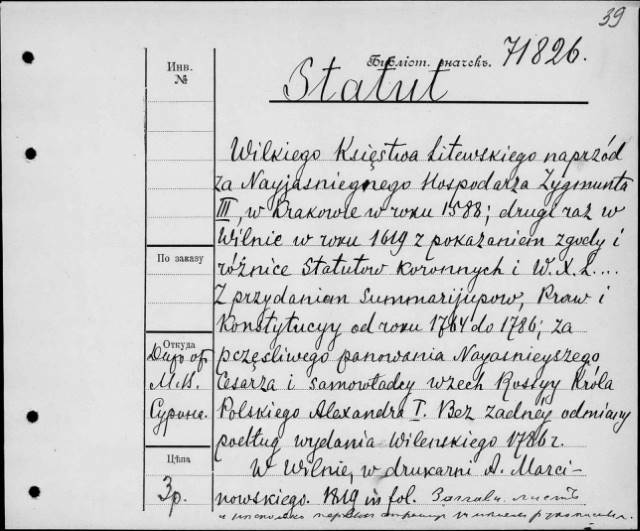 39
Бібліот. значекъ. 71826.
Инв.
№
Statut
Wilkiego Księstwa Litewskiego naprzód
za Nayjasniegnego Hospodarza Zygmunta
III, w Krakowie w roku 1588; drugi raz w
Wilnie w roku 1619 z pokazaniem zgody i
По заказу
różnice Statutow koronnych i W.X.L....
Z przydaniem Summarijupow, Praw i
Konstytucyy od roku 1764 do 1786; za
Откуда
pczęsliwego panowania Nayasnieyszego
М.В.
Cesarza i samowładcy wzech Rossyy Króla
Polskiego Alexandra I. Bez żadnéj odmiany
podług wydania Wilenskiego 1786 r.
Цѣна
W Wilnie, w drukarni A. Marci-
3 р.
nowskiego. 1819 in fol. Заглавн. листъ
и нѣсколько первыхъ страницъ